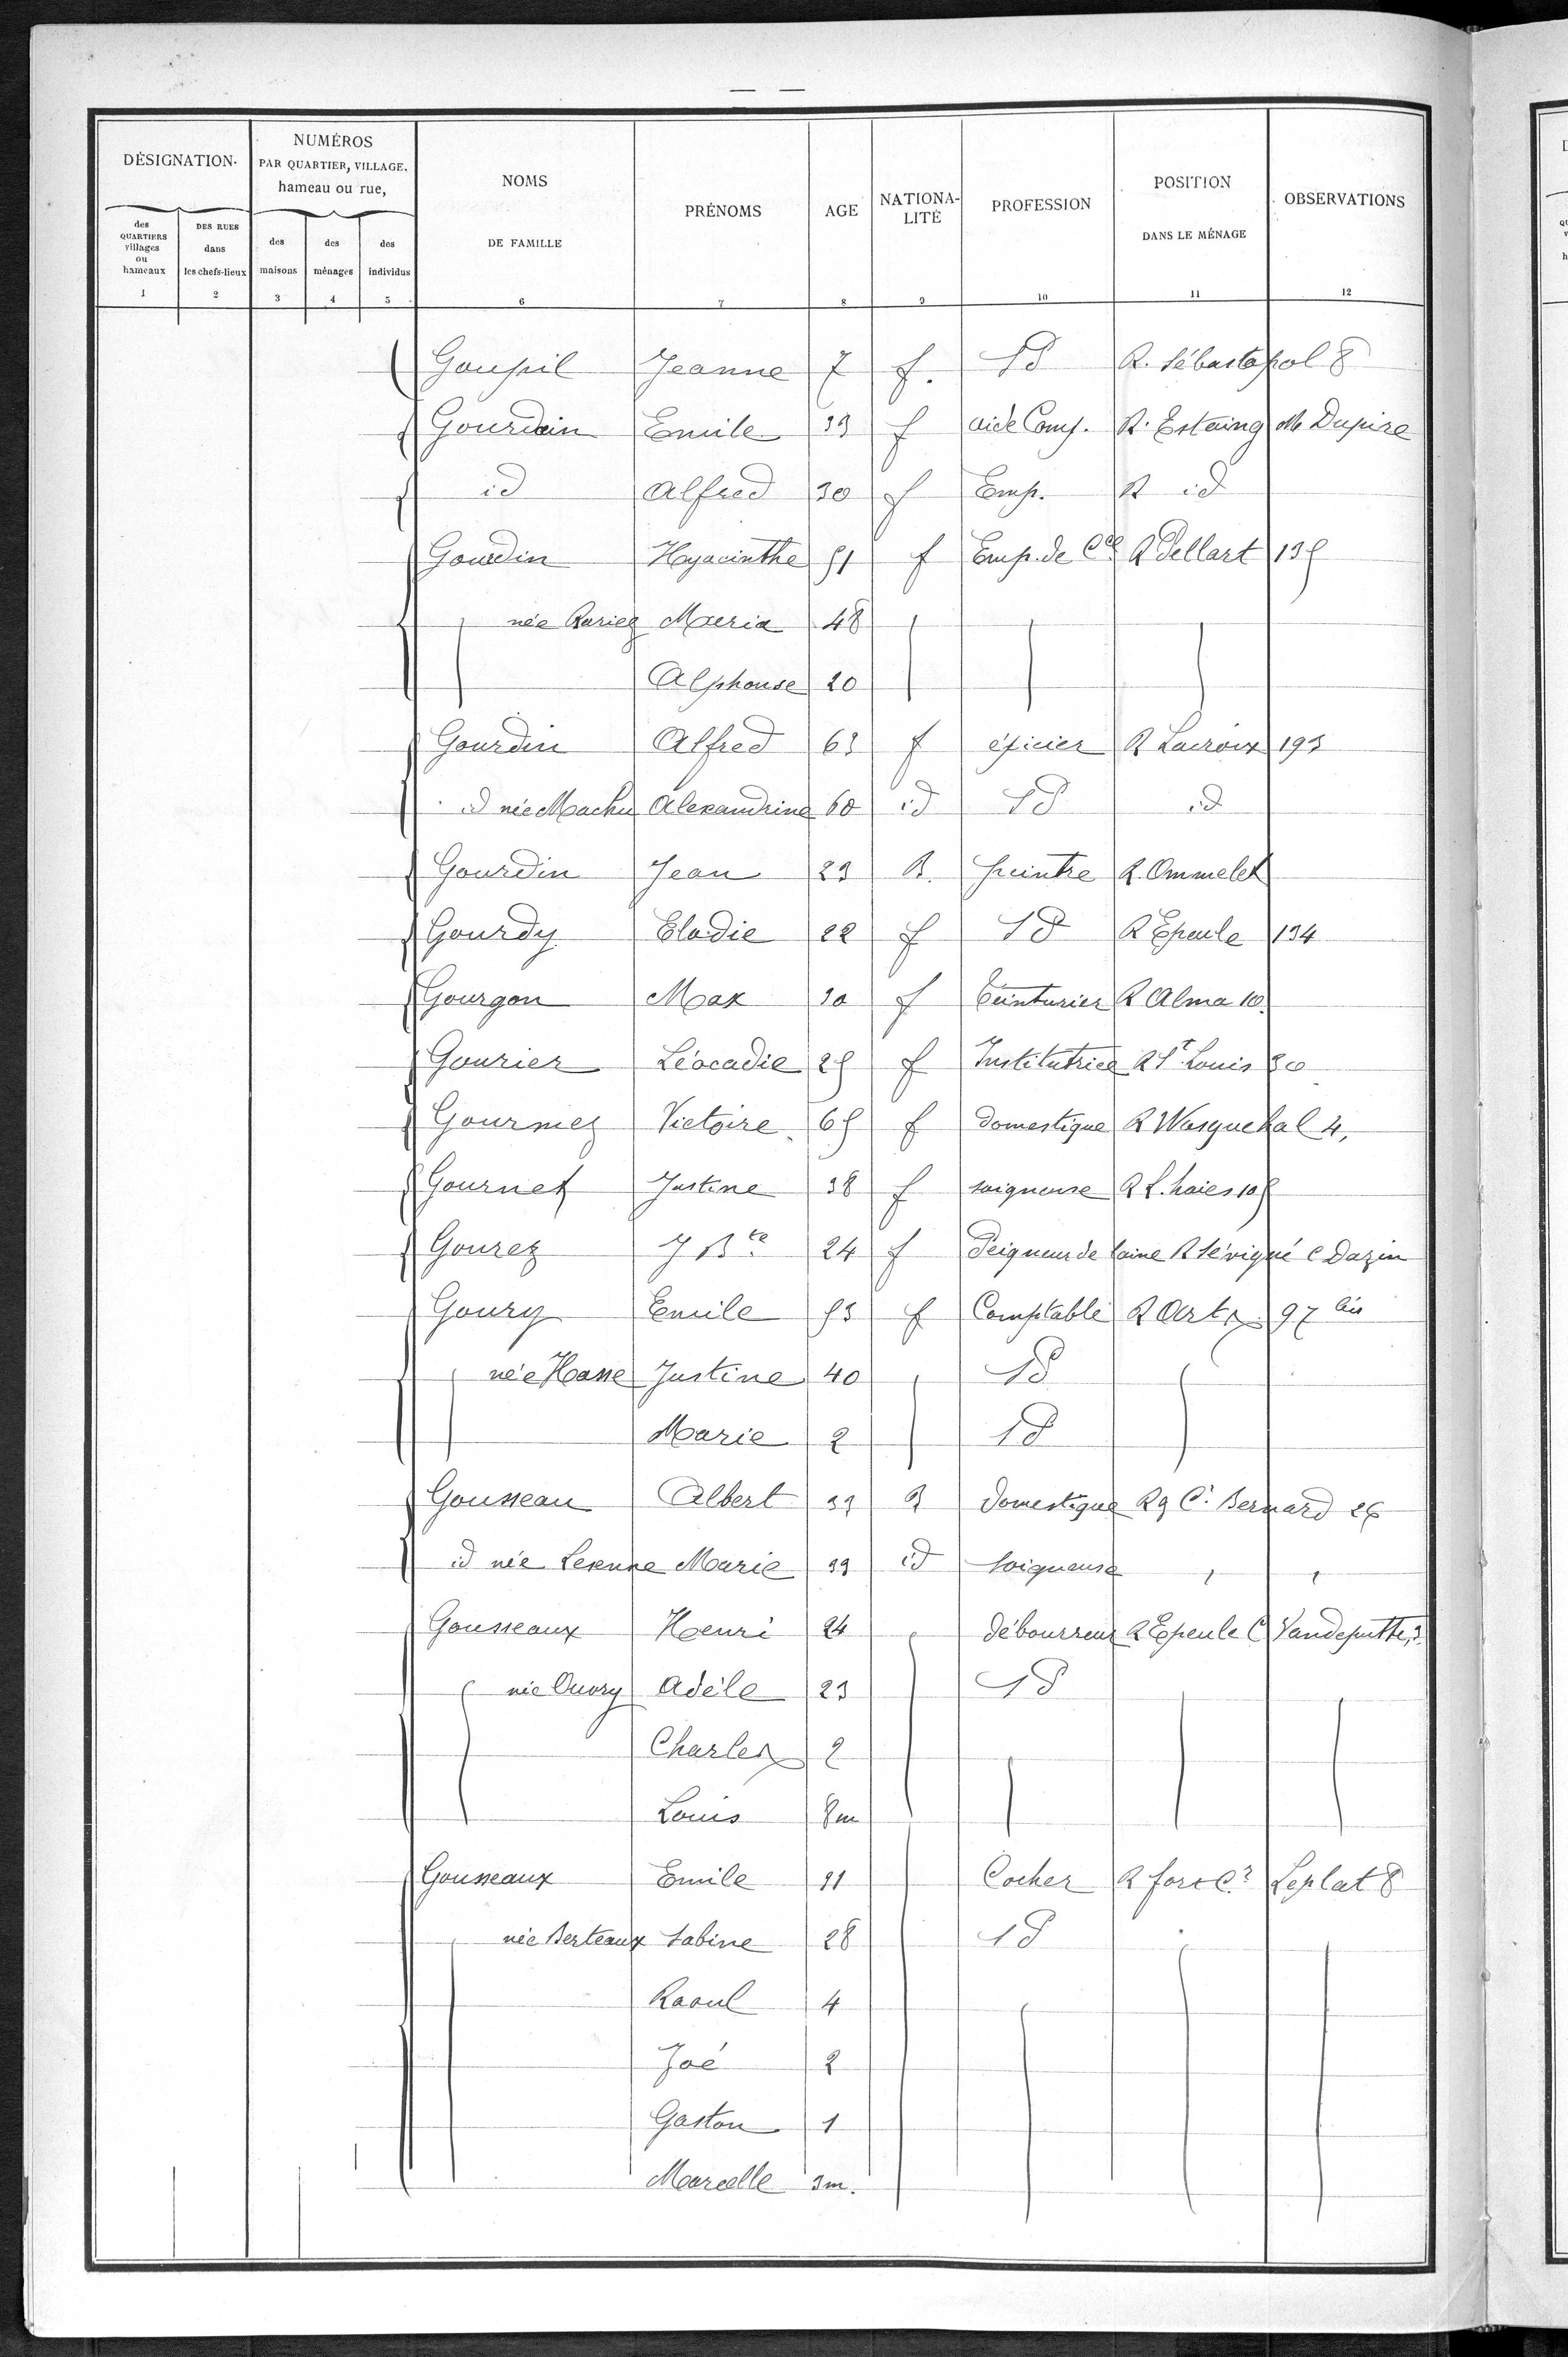 DÉSIGNATION.
NUMÉROS
PAR QUARTIER, VILLAGE,
hameau ou rue,
NOMS
DE FAMILLE
PRÉNOMS
AGE
NATIONA-
LITÉ
PROFESSION
POSITION
DANS LE MÉNAGE
OBSERVATIONS
des
QUARTIERS
villages
ou
hameaux
DES RUES
dans
les chefs-lieux
des
maisons
des
ménages
des
individus
1 2 3 4 5 6 7 8 9 10 11 12
Goupil Jeanne 7 f. SP R. Sébastopol 8
Gourdin Emile 33 f aide Comp. R. Estaing M Dupire
id Alfred 30 f Emp. R id
Gourdin Hyacinthe 51 f Emp. de Cce R Pellart 135
née Maria 48
Alphonse 20
Gourdin Alfred 63 f épicier R Lacroix 193
id née Machu Alexandrine 60 id SP id
Gourdin Jean 23 B. peintre R. Ommelet
Gourdy Elodie 22 f SP R Epeule 134
Gourgon Max 30 f teinturier R Alma 10.
Gourier Léocadie 25 f Institutrice R St Louis 30
Gourmez Victoire 65 f domestique R Wasquehal 4,
Gournet Justine 38 f soigneuse R L. haies 105
Gourez J Bte 24 f Peigneur de laine R Sévigné C Dazin
Goury Emile 53 f Comptable R Arts 97 bis
née Hasse Justine 40 SP
Marie 2 SP
Gousseau Albert 33 B domestique Rg C. Bernard 26
id née Marie 33 id soigneuse
Gousseaux Henri 24 débourreur R Epeule C Vandeputte, 3.
née Ouvry Adèle 23 SP
Charles 2
Louis 8m
Gousseaux Emile 31 Cocher R fort Cr Leplat 8
née Berteaux Sabine 28 SP
Raoul 4
Joé 2
Gaston 1
Marcelle 3m.